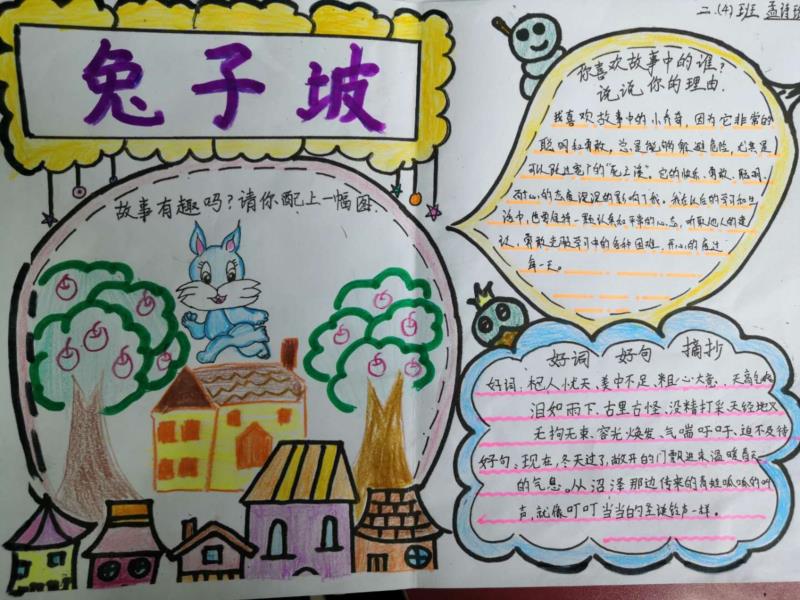 兔子坡
故事有趣吗?请你配上一幅图
二.(4)班 孟诗
你喜欢故事中的谁?
说说你的理由.
我喜欢故事中的小乔奇,因为它非常的
聪明和勇敢,总是能够躲避危险,尤其是
可以跃过宽广的"死亡溪"。它的快乐、勇敢、聪明、
耐心的态度深深的影响了我。我在以后的学习和生
活中,也要保持一颗认真和平常的心态,听取他人的建
议,勇敢克服学习中的各种困难,开心的度过
每一天。
好词 好句 摘抄
好词:杞人忧天、美中不足、粗心大意、天高气
泪如雨下、古里古怪、没精打采、天经地义
无拘无束、容光焕发、气喘吁吁、迫不及待
好句:现在,冬天过了,敞开的门飘进来温暖春天
的气息。从沼泽那边传来的青蛙呱呱的叫
声,就像叮叮当当的圣诞铃声一样。